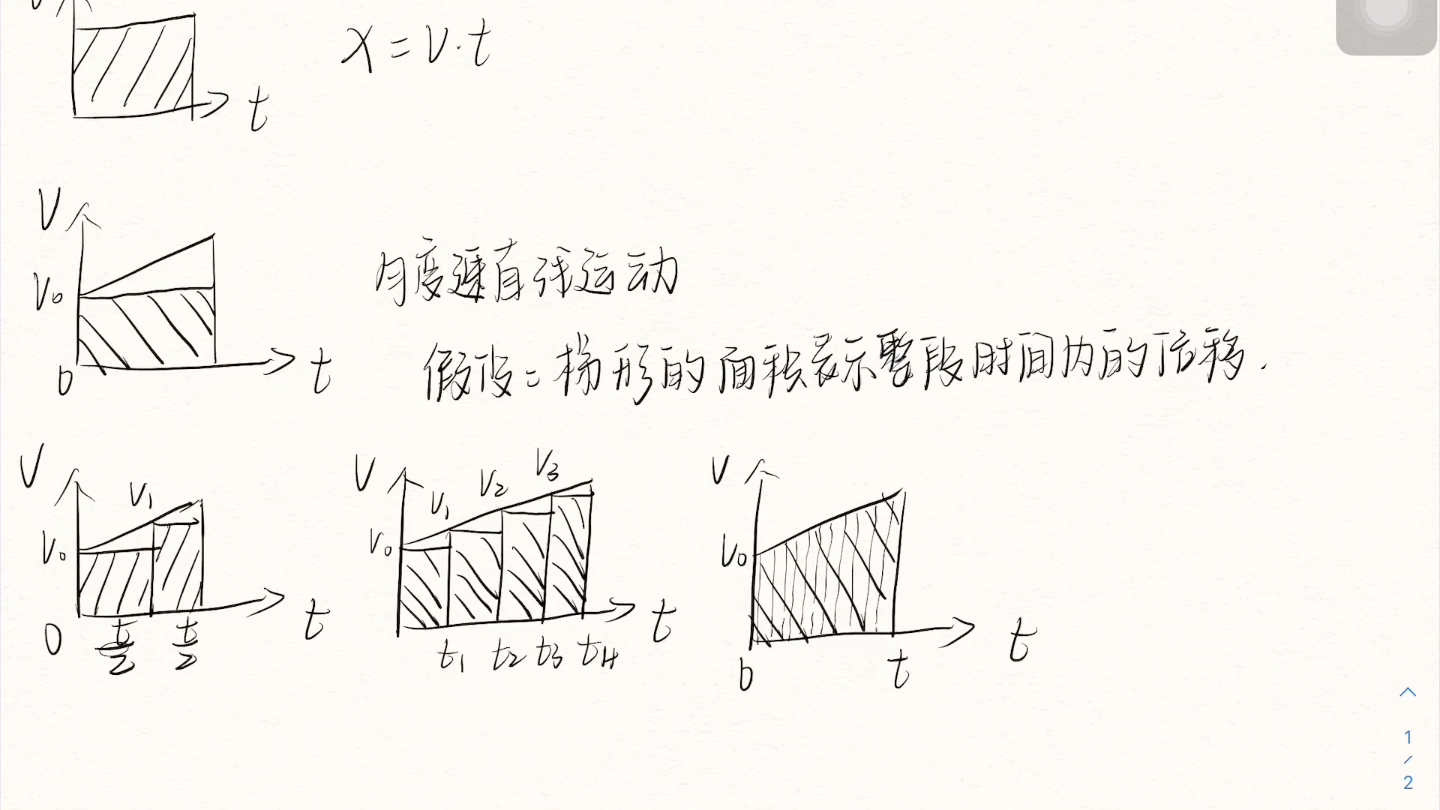 V
x = v·t
t
V
V₀
匀变速直线运动
0
t
假设：梯形的面积表示整段时间内的位移.
V
V₁
V₀
0
t/2
t/2
t
V
V₁
V₂
V₃
V₀
t₁ t₂ t₃ t₄
t
V
V₀
0
t
t
1
/
2